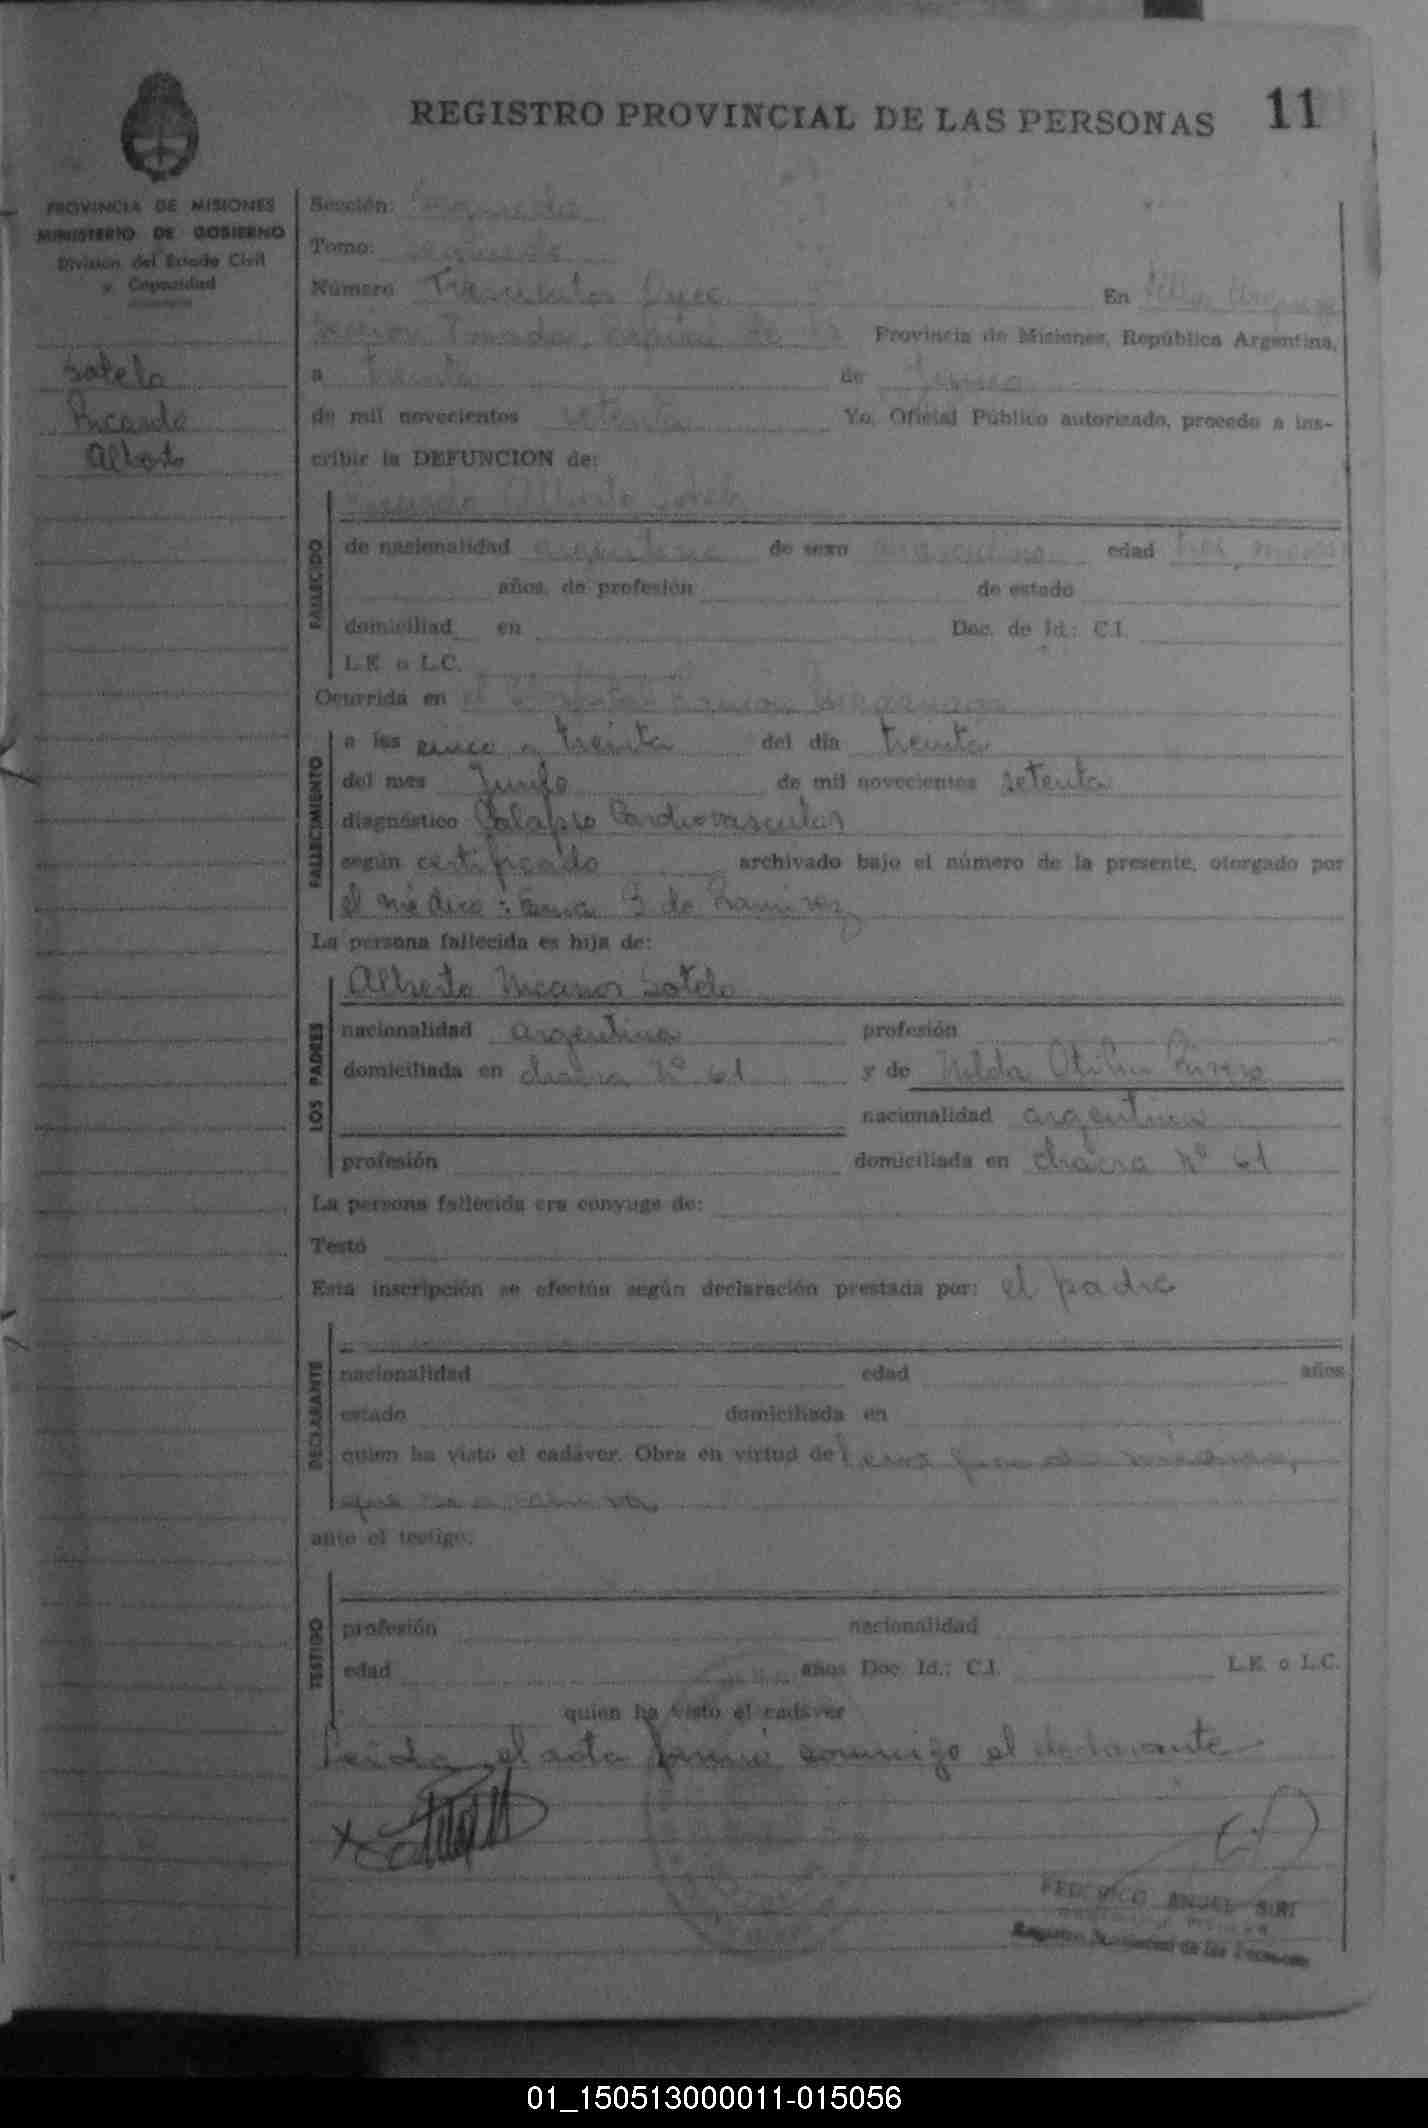 REGISTRO PROVINCIAL DE LAS PERSONAS 11
PROVINCIA DE MISIONES
MINISTERIO DE GOBIERNO
División del Estado Civil
y Capacidad
Sotelo
Ricardo
Alberto
Sección: Segunda
Tomo: segundo
Número Trescientos En Villa Urquiza
Sección Posadas, Capital de la Provincia de Misiones, República Argentina,
a treinta de Junio
de mil novecientos setenta Yo, Oficial Público autorizado, procedo a ins-
cribir la DEFUNCION de:
Ricardo Alberto Sotelo
FALLECIDO
de nacionalidad argentina de sexo masculino edad tres meses
años, de profesión de estado
domiciliad en Doc. de Id.: C.I.
L.E. o L.C.
Ocurrida en el Hospital Ramón Madariaga
FALLECIMIENTO
a las cinco y treinta del día treinta
del mes Junio de mil novecientos setenta
diagnóstico Colapso Cardiovascular
según certificado archivado bajo el número de la presente, otorgado por
el médico: de Ramirez
La persona fallecida es hija de:
LOS PADRES
Alberto Nicanor Sotelo
nacionalidad argentina profesión
domiciliada en chacra Nº 61 y de Nilda
nacionalidad argentina
profesión domiciliada en chacra Nº 61
La persona fallecida era conyuge de:
Testó
Esta inscripción se efectúa según declaración prestada por: el padre
DECLARANTE
nacionalidad edad años
estado domiciliada en
quien ha visto el cadáver. Obra en virtud de
ante el testigo:
TESTIGO
profesión nacionalidad
edad años Doc. Id.: C.I. L.E. o L.C.
quien ha visto el cadáver
Leida el acta firmó conmigo el declarante
FEDERICO ANGEL SIRI
Registro Provincial de las Personas
01_150513000011-015056